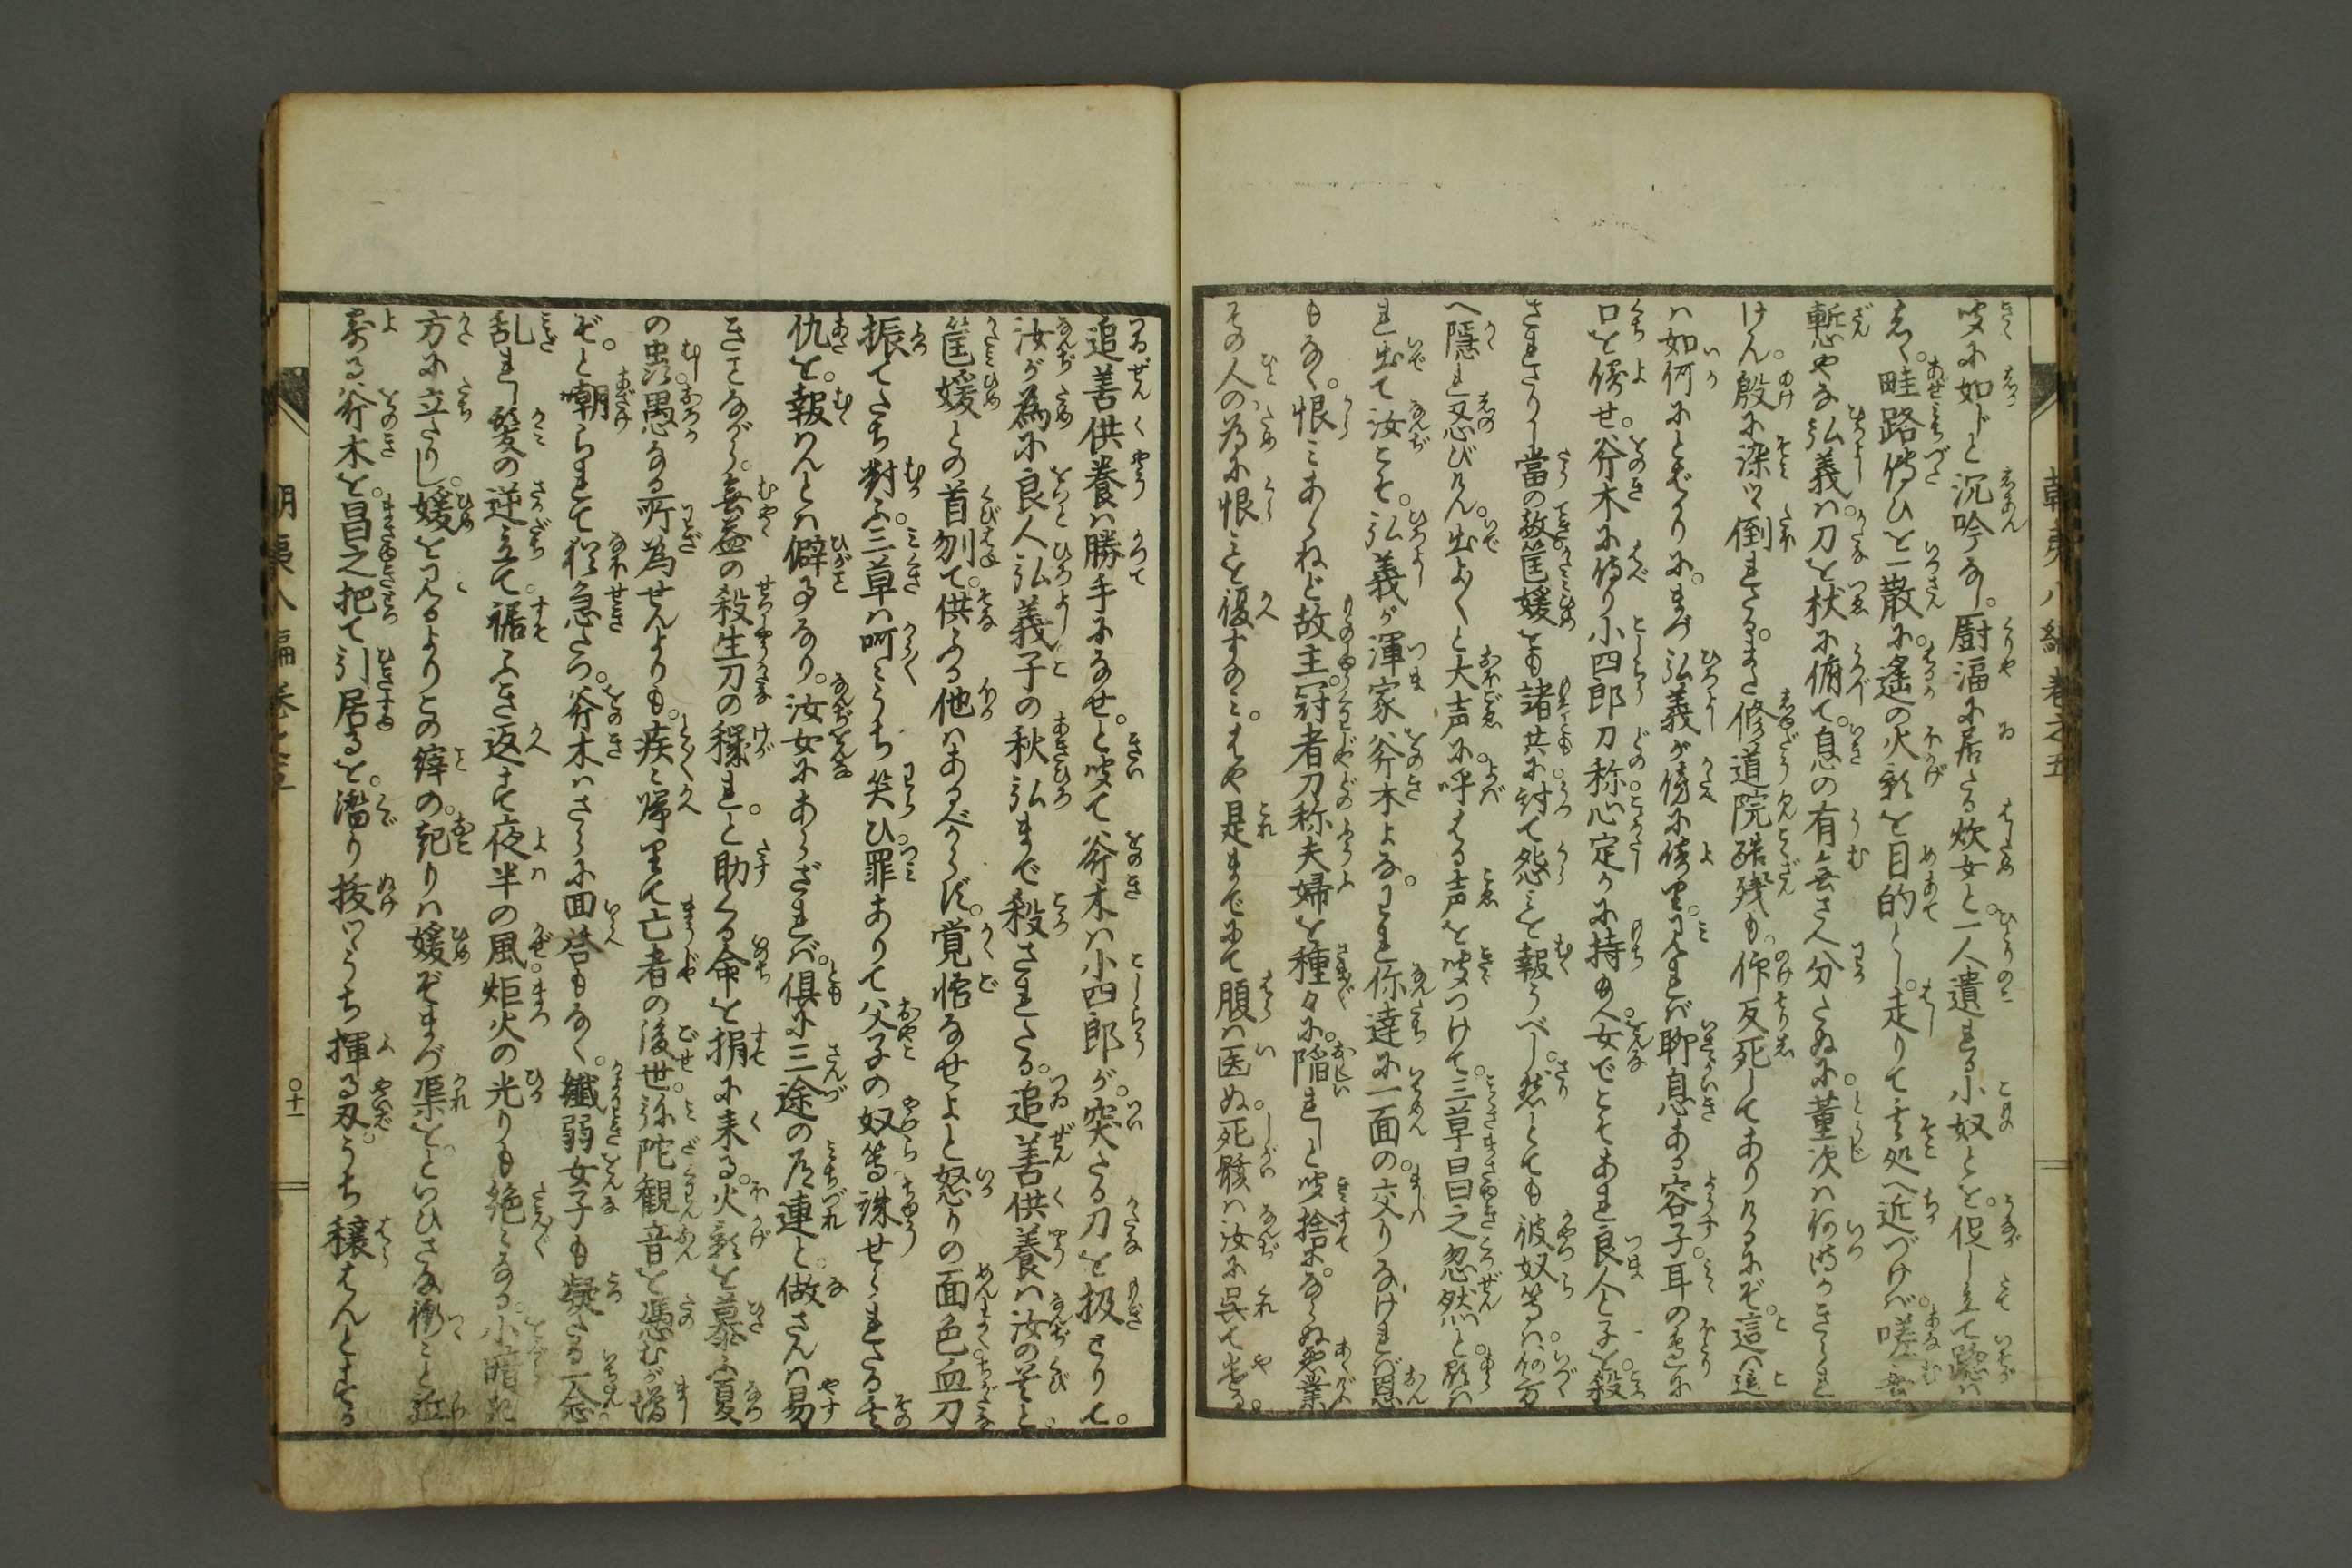 朝夷八編巻之五
唆ふ如じと沈吟なし。厨湢に居たる炊女と。一人遺れる小奴とを。促し立て路は
あしく。畦路伝ひを一散に。遙の火影を目的とし。走りて其処へ近づけば。嗟無
慙やな弘義は。刀を杖に俯て。息の有無さへ分たぬに。董次は何時かきられ
けん。殷に染て倒れたる。また修道院酷残も。仰反死してありけるにぞ。這は這
は如何にとばかりに。まづ弘義が傍に倚里。見れば聊息ある容子。耳の辺に
口を倚せ。斧木に侍り小四郎刀称心定かに持給へ。女でこそあれ良人と子を。殺
されたりし当の敵。筐媛をも諸共に討て怨みを報うべし。然りとても彼奴等は。何方
へ隠れ忍びけん。出よ〳〵と大声に。呼はる声を唆つけて。三草昌之忽然と。顕は
れ出て汝こそ。弘義が渾家斧木よな。われ你達に一面の。交りなければ恩
もなく。恨みあらねど故主。冠者刀称夫婦を種々に。陥れしと唆捨に。ならぬ悪業
その人の為に恨みを復すのみ。はや是までにて腹は医ぬ。死骸は汝に呉て遣る。
追善供養は勝手になせ。と唆て斧木は小四郎が。突たる刀を扱とりて。
汝が為に良人弘義子の秋弘まで殺されたる。追善供養は汝の首と。
筐媛との首刎て。供ふる他はあるべからず。覚悟なせよと怒りの面色血刀
振てたち対ふ。三草は呵々うち笑ひ。罪ありて父子の奴等誅せられたる其
仇を。報はんとは僻事なり。汝女にあらざれば。倶に三途の道連と。做さんは易
きことながら。無益の殺生刀の穢れ。と助くる命を捐に来る。火影を慕ふ夏
の虫。愚なる所為せんよりも。疾々帰里て亡者の後世。弥陀観音を憑むが増
ぞ。と嘲られて猶急たつ。斧木はさらに面答もなく。繊弱女子も凝たる一念
乱れし髪の逆立て。裾ふき返す夜半の風炬火の光りも絶々なる。小暗き
方に立たりし。媛を見るよりこの縡の。起りは媛ぞまづ渠を。といひさま衝と近
寄る斧木を。昌之把て引居るを。潜り抜つゝうち揮る刃。うち穣はんとする
朝夷八編巻之五
〇十一